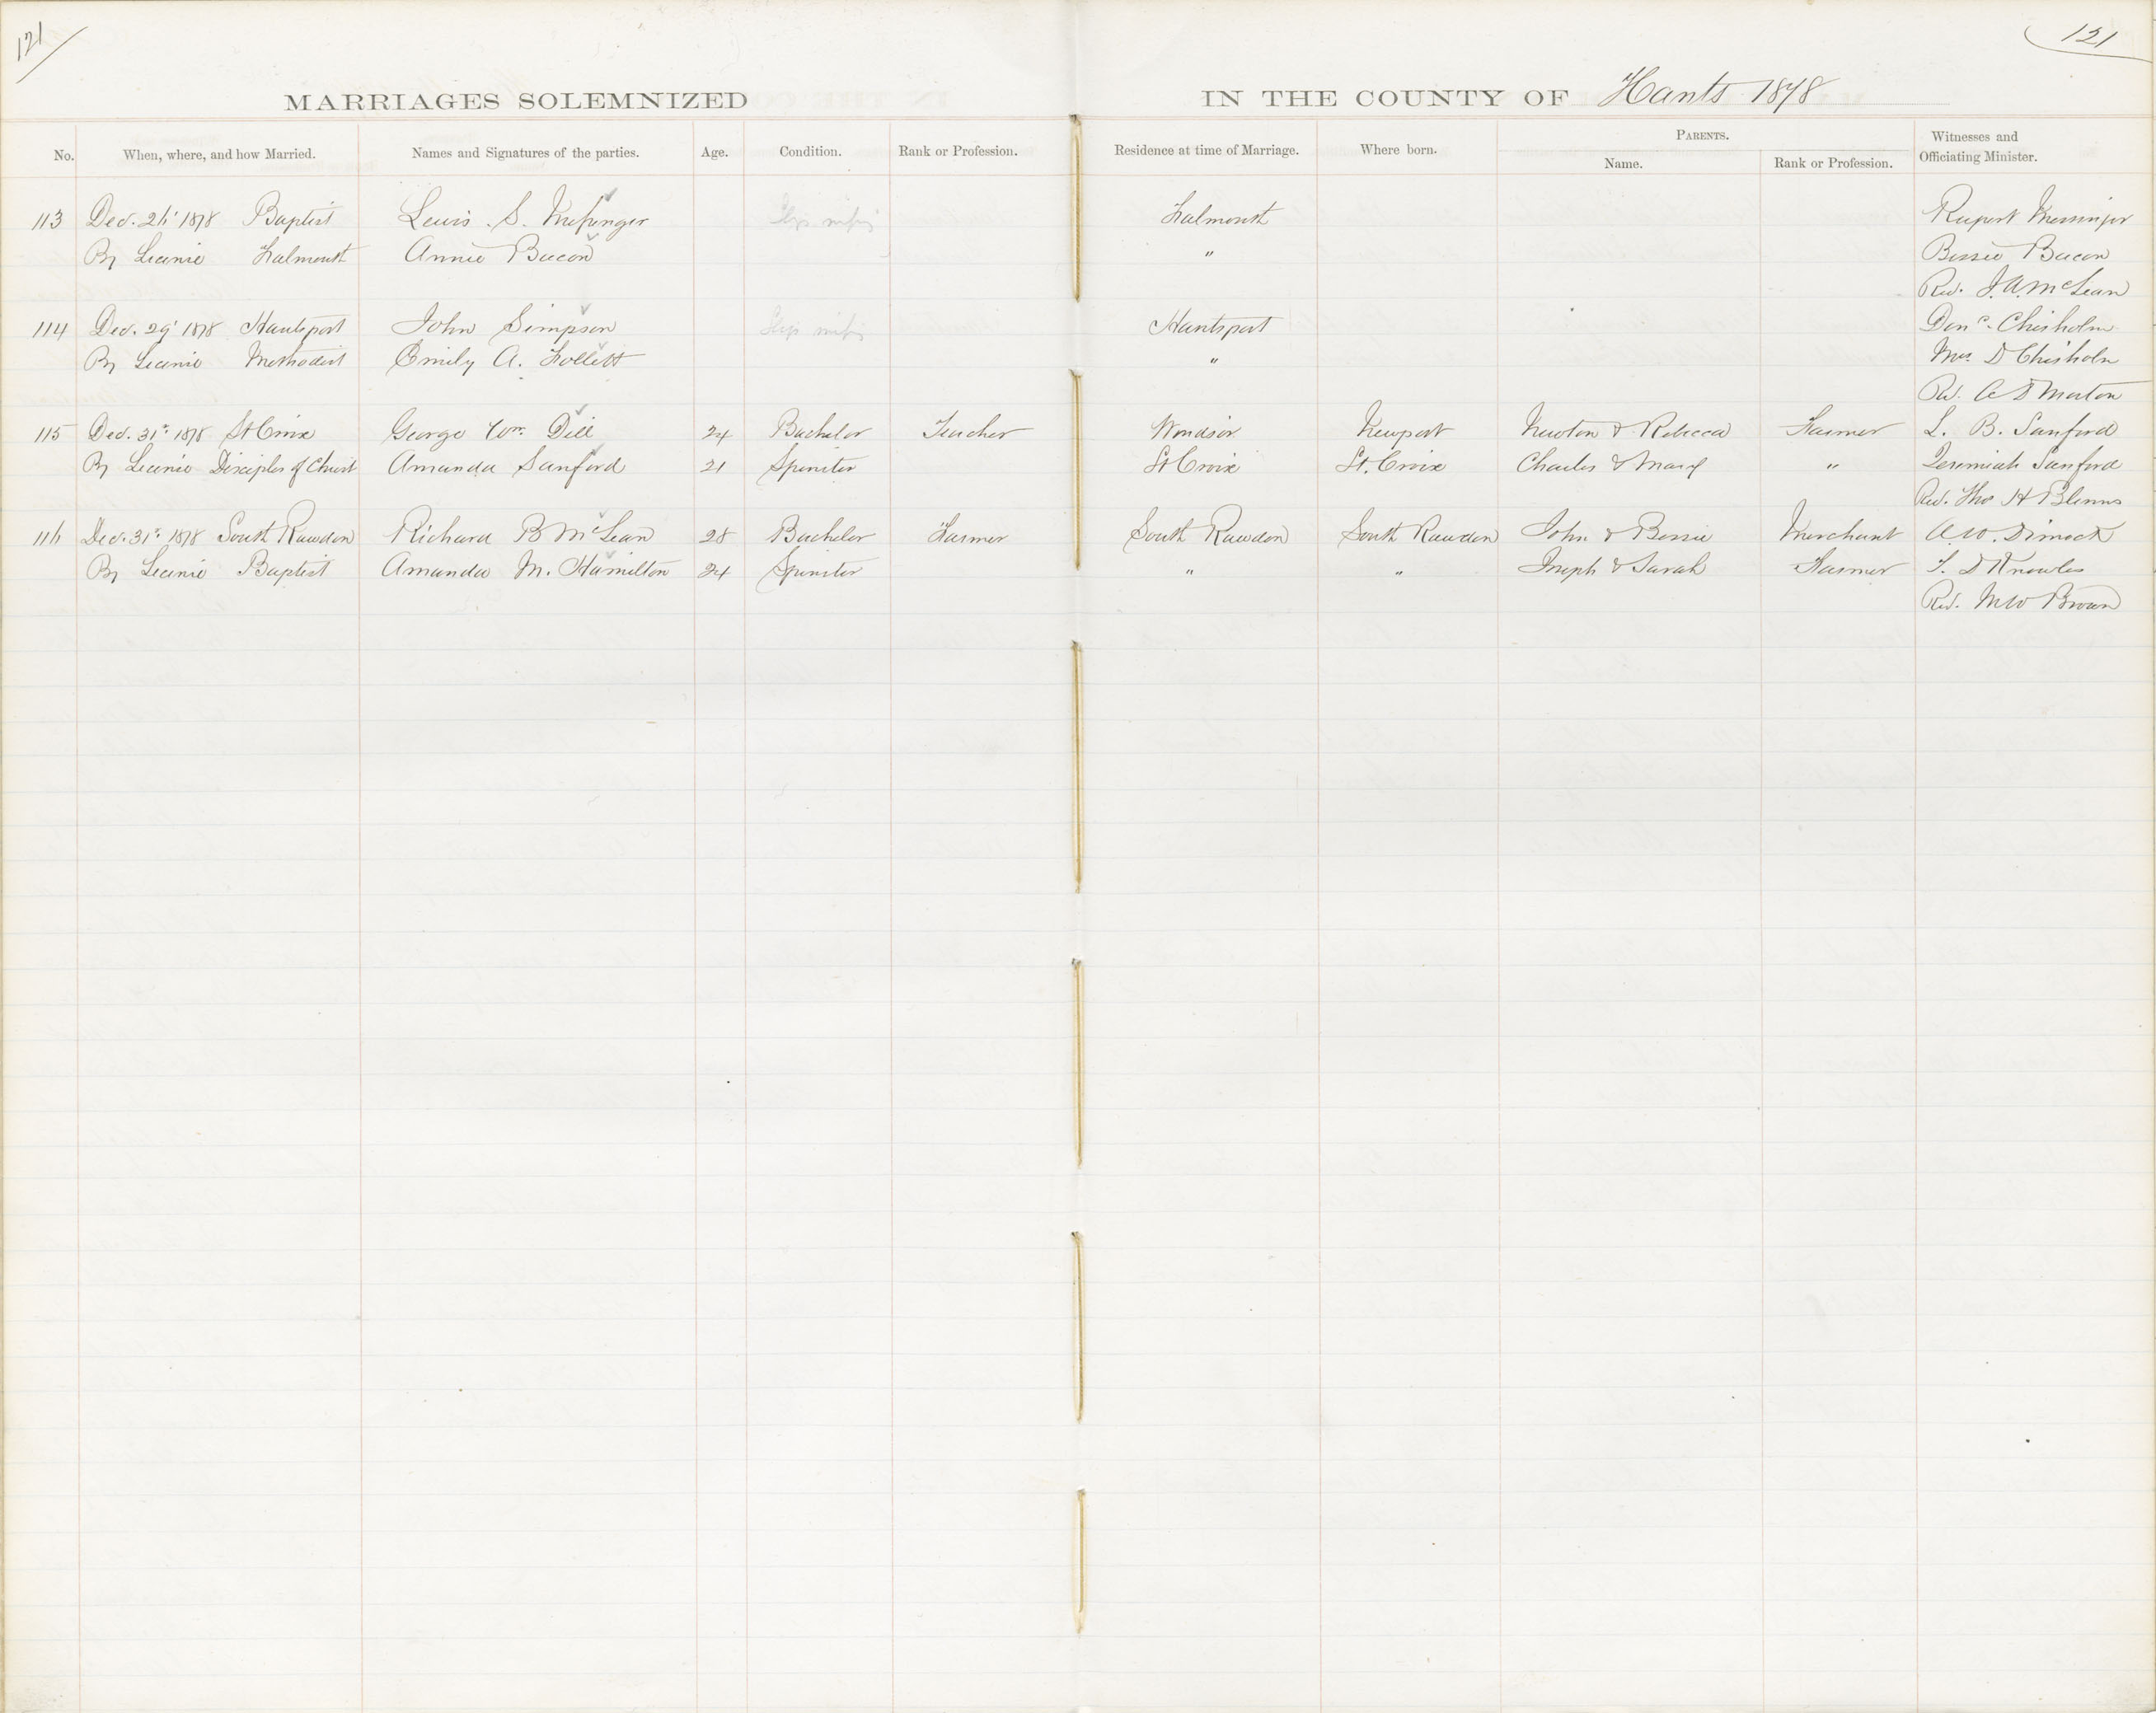 121 121
MARRIAGES SOLEMNIZED IN THE COUNTY OF Hants 1878
No. When, where, and how Married. Names and Signatures of the parties. Age. Condition. Rank or Profession. Residence at time of Marriage. Where born. PARENTS. Name. Rank or Profession. Witnesses and Officiating Minister.
113 Dec. 26' 1878 Baptist Lewis S. Messenger Falmouth Rupert Messinger
By Licence Falmouth Annie Bacon " Bessie Bacon
Rev. J. A. McLean
114 Dec. 29' 1878 Hantsport John Simpson Hantsport Donc. Chisholm
By Licence Methodist Emily A. Follett " Mrs D Chisholm
Rev. A D Morton
115 Dec. 31st 1878 St Croix George Wm. Dill 24 Bachelor Teacher Windsor Newport Newton & Rebecca Farmer L. B. Sanford
By Licence Disciples of Christ Amanda Sanford 21 Spinster St Croix St. Croix Charles & Mary " Jeremiah Sanford
Rev. Thos H Blenus
116 Dec. 31st 1878 South Rawdon Richard B McLean 28 Bachelor Farmer South Rawdon South Rawdon John & Bessie Merchant A. W. Dimock
By Licence Baptist Amanda M. Hamilton 24 Spinster " " Joseph & Sarah Farmer T. D Knowles
Rev. M W Brown